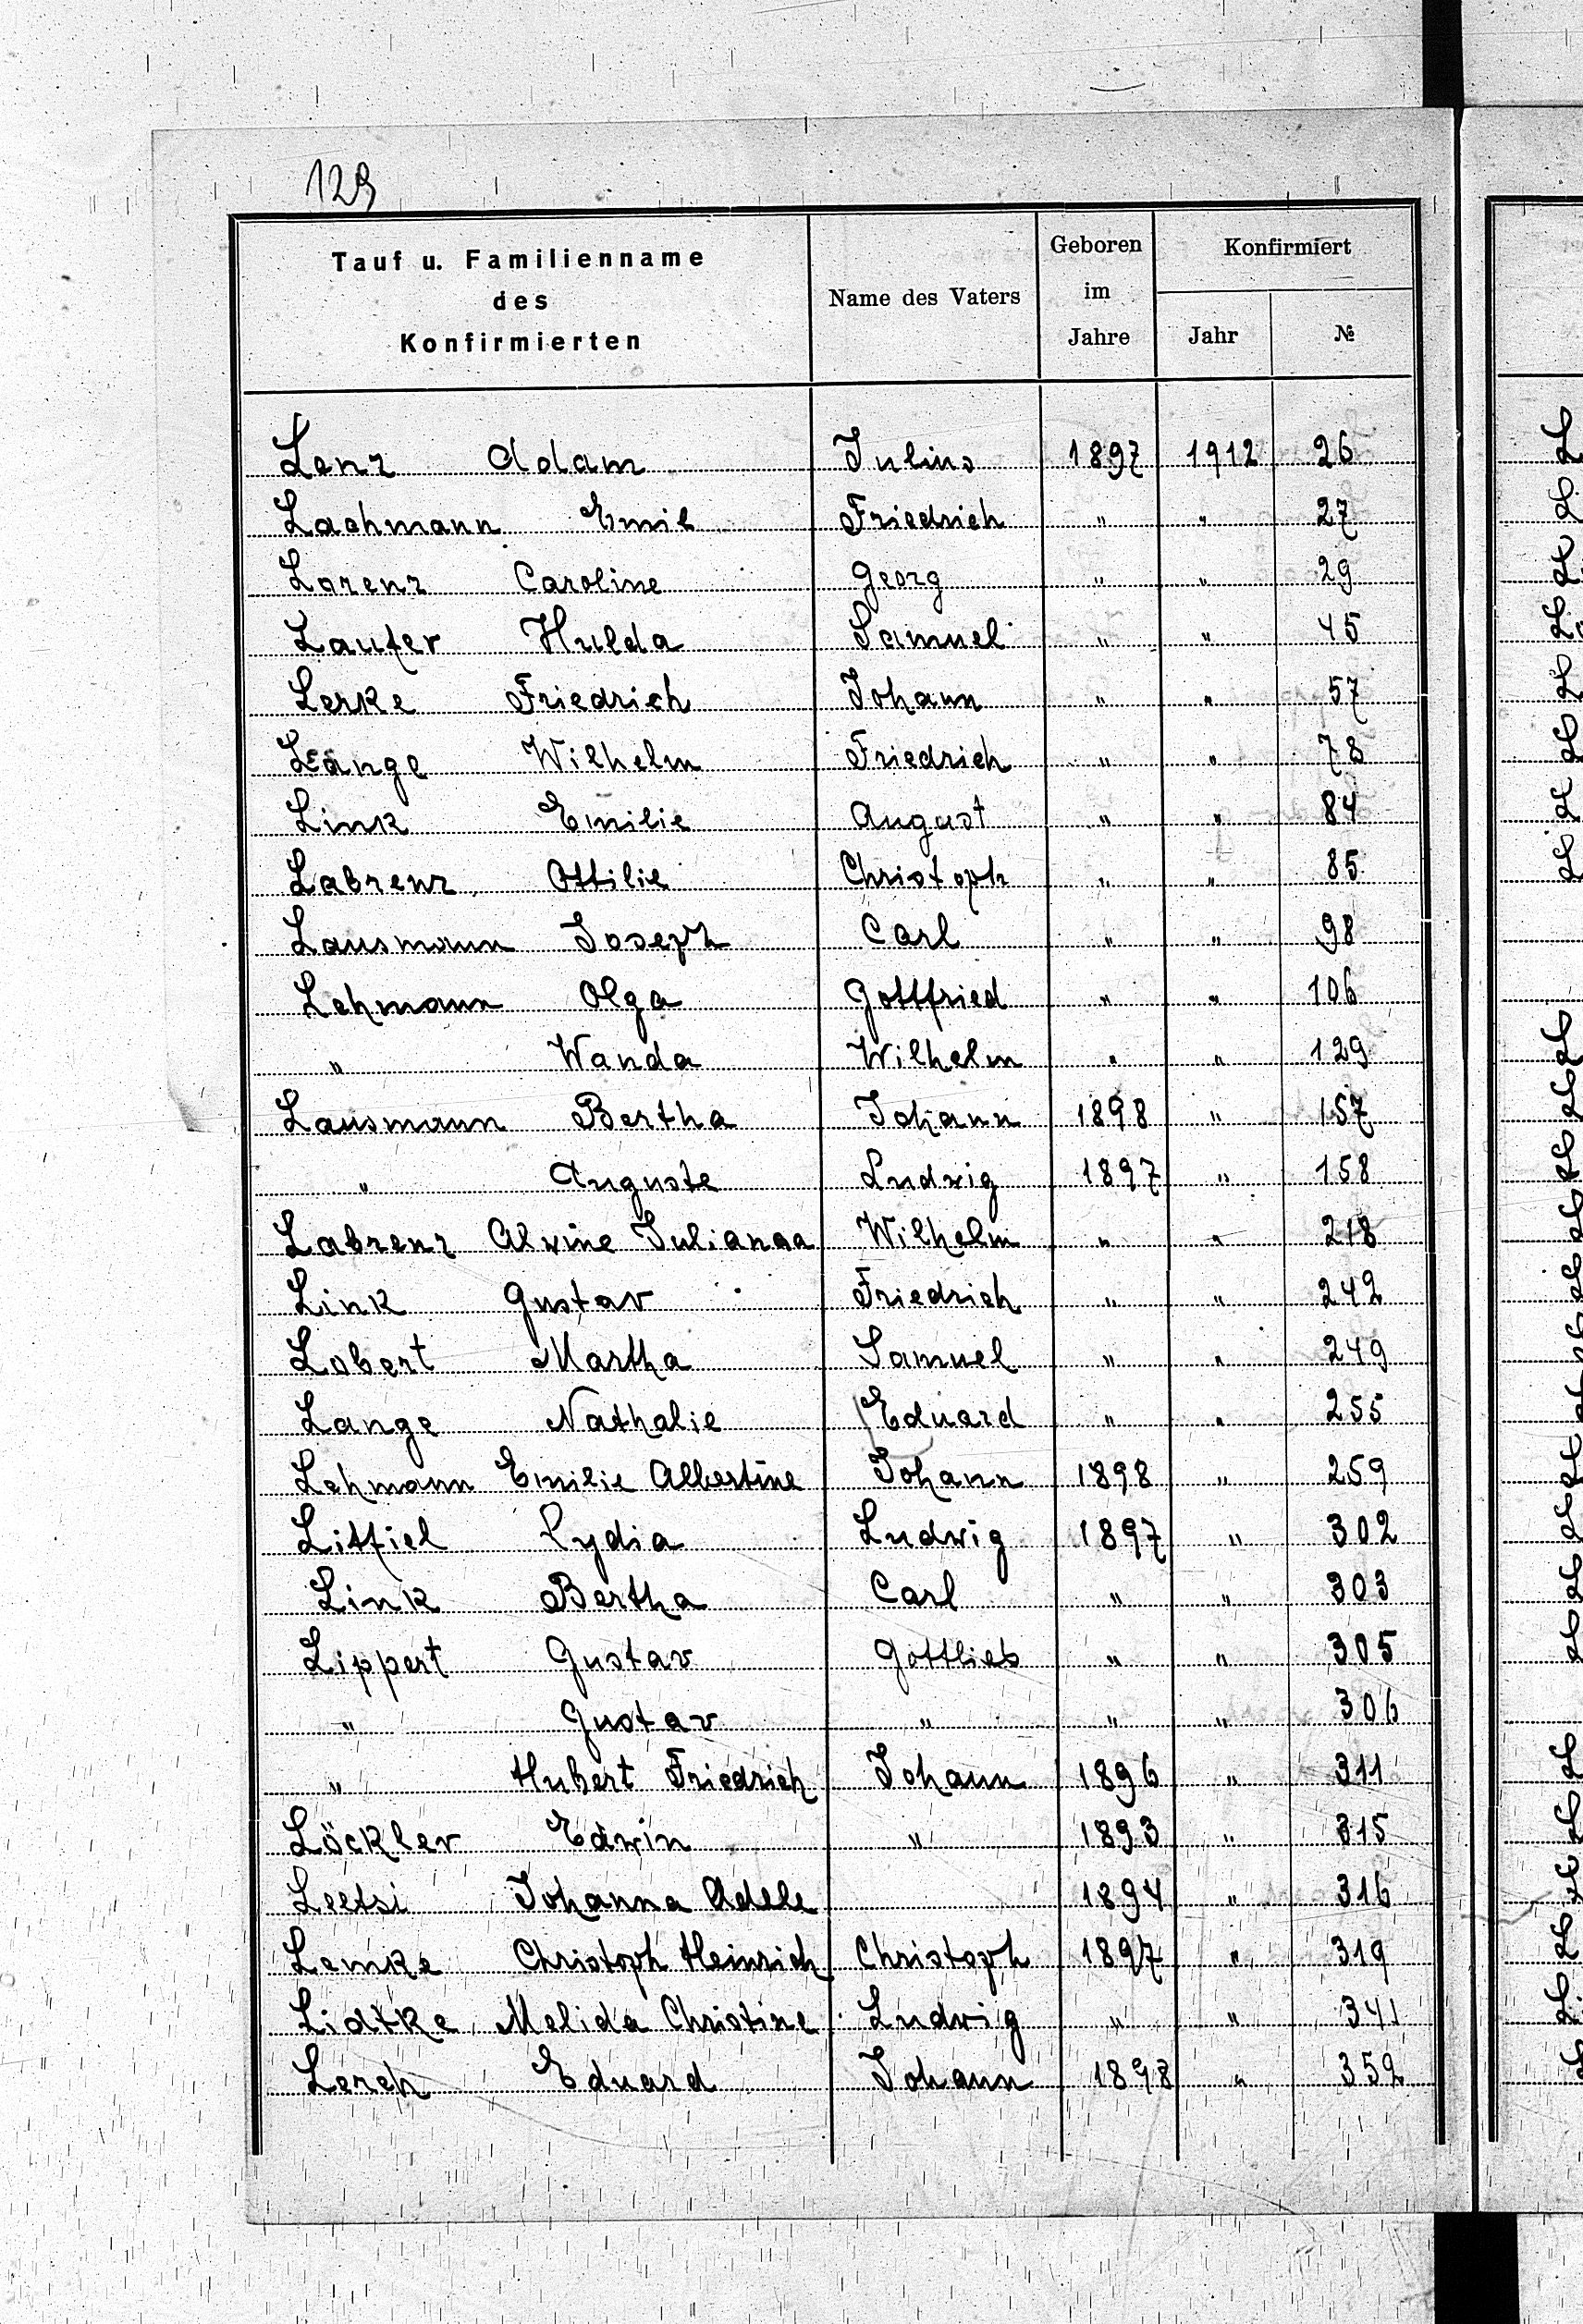 129
Tauf u. Familienname des Konfirmierten | Name des Vaters | Geboren im Jahre | Konfirmiert Jahr | №
Lenz Adam | Julius | 1897 | 1912 | 26
Lachmann Emil | Friedrich | " | " | 27
Lorenz Caroline | Georg | " | " | 29
Laufer Hulda | Samuel | " | " | 45
Lerke Friedrich | Johann | " | " | 57
Länge Wilhelm | Friedrich | " | " | 78
Link Emilie | August | " | " | 84
Labrenz Ottilie | Christoph | " | " | 85
Lausmann Joseph | Carl | " | " | 98
Lehmann Olga | Gottfried | " | " | 106
" Wanda | Wilhelm | " | " | 129
Lausmann Bertha | Johann | 1898 | " | 157
" Auguste | Ludwig | 1897 | " | 158
Labrenz Alwine Julianaa | Wilhelm | " | " | 218
Link Gustav | Friedrich | " | " | 242
Lobert Martha | Samuel | " | " | 249
Lange Nathalie | Eduard | " | " | 255
Lehmann Emilie Albertine | Johann | 1898 | " | 259
Litfiel Lydia | Ludwig | 1897 | " | 302
Link Bertha | Carl | " | " | 303
Lippert Gustav | Gottlieb | " | " | 305
" Gustav | " | " | " | 306
" Hubert Friedrich | Johann | 1896 | " | 311
Löckler Edwin | " | 1893 | " | 315
Leetsi Johanna Adele | 1894 | " | 316
Lemke Christoph Heinrich | Christoph | 1897 | " | 319
Lidtke Melida Christine | Ludwig | " | " | 341
Lerch Eduard | Johann | 1898 | " | 359